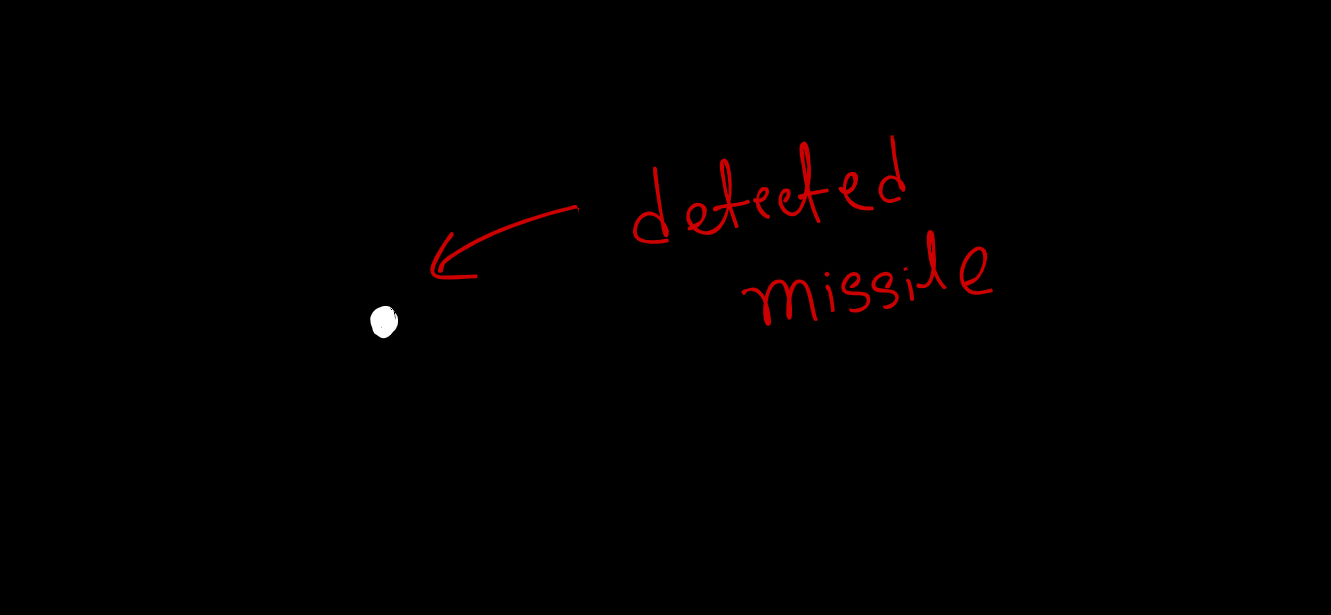 detected
missile